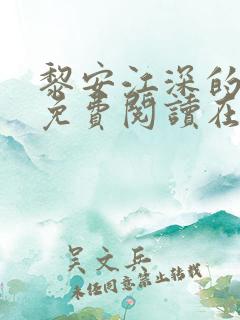 黎安江深的
免費閱讀在
吳文兵
未經同意禁止轉載